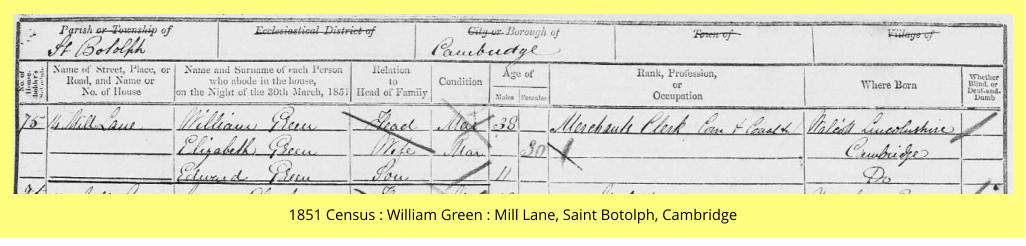 Parish or Township of Ecclesiastical District of City or Borough of Town of Village of
St Botolph Cambridge
No. of House- holder's Name of Street, Place, or Road, and Name or No. of House Name and Surname of each Person who abode in the house, on the Night of the 30th March, 1851 Relation to Head of Family Condition Age of Males Females Rank, Profession, or Occupation Where Born Whether Blind, or Deaf-and-Dumb
75 Mill Lane William Green Head Mar 38 Merchants Clerk Corn & Coal Lincolnshire
Elizabeth Green Wife Mar 30 Cambridge
Edward Green Son 11 Do
1851 Census : William Green : Mill Lane, Saint Botolph, Cambridge